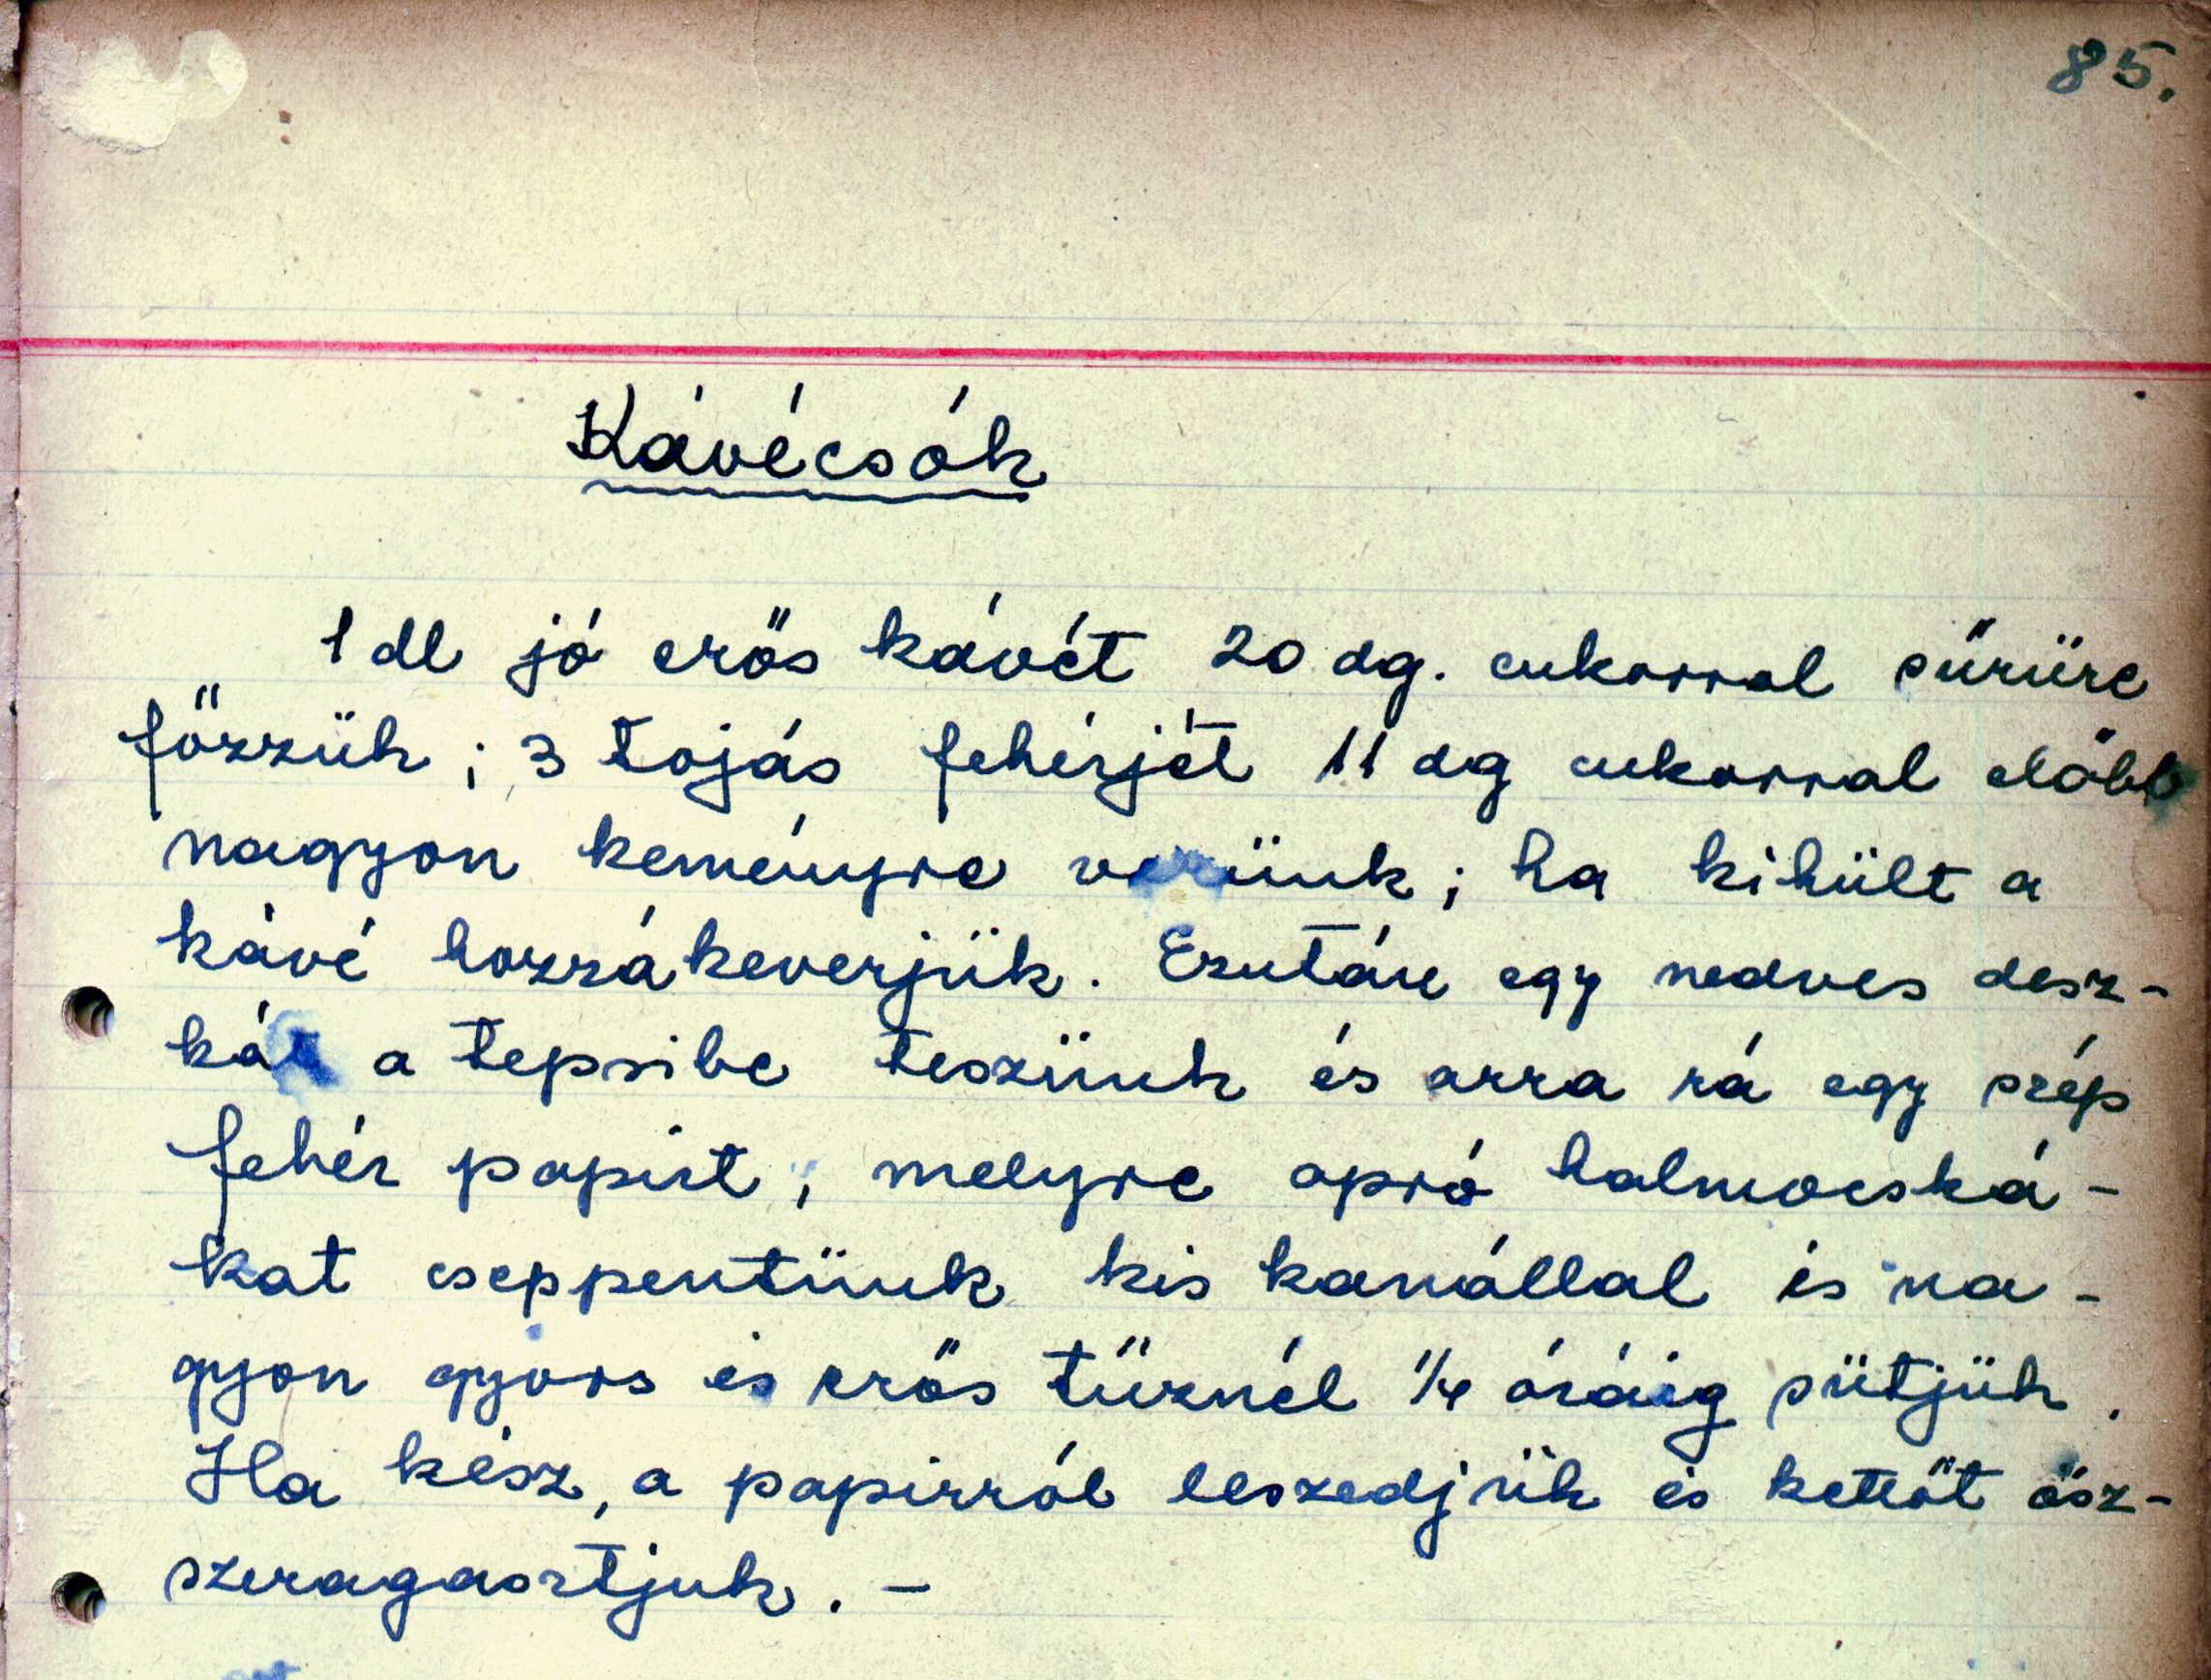 85.
Kávécsók
1 dl jó erős kávét 20 dg. cukorral sűrüre
főzzük; 3 tojás fehérjét 11 dg cukorral előbb
nagyon keményre verünk; ha kihült a
kávé hozzákeverjük. Ezután egy nedves desz-
kát a tepsibe teszünk és arra rá egy szép
fehér papirt; melyre apró halmocská-
kat cseppentünk kis kanállal és na-
gyon gyors és erős tűznél 1/4 óráig sütjük.
Ha kész, a papirról leszedjük és kettőt ösz-
szeragasztjuk. -